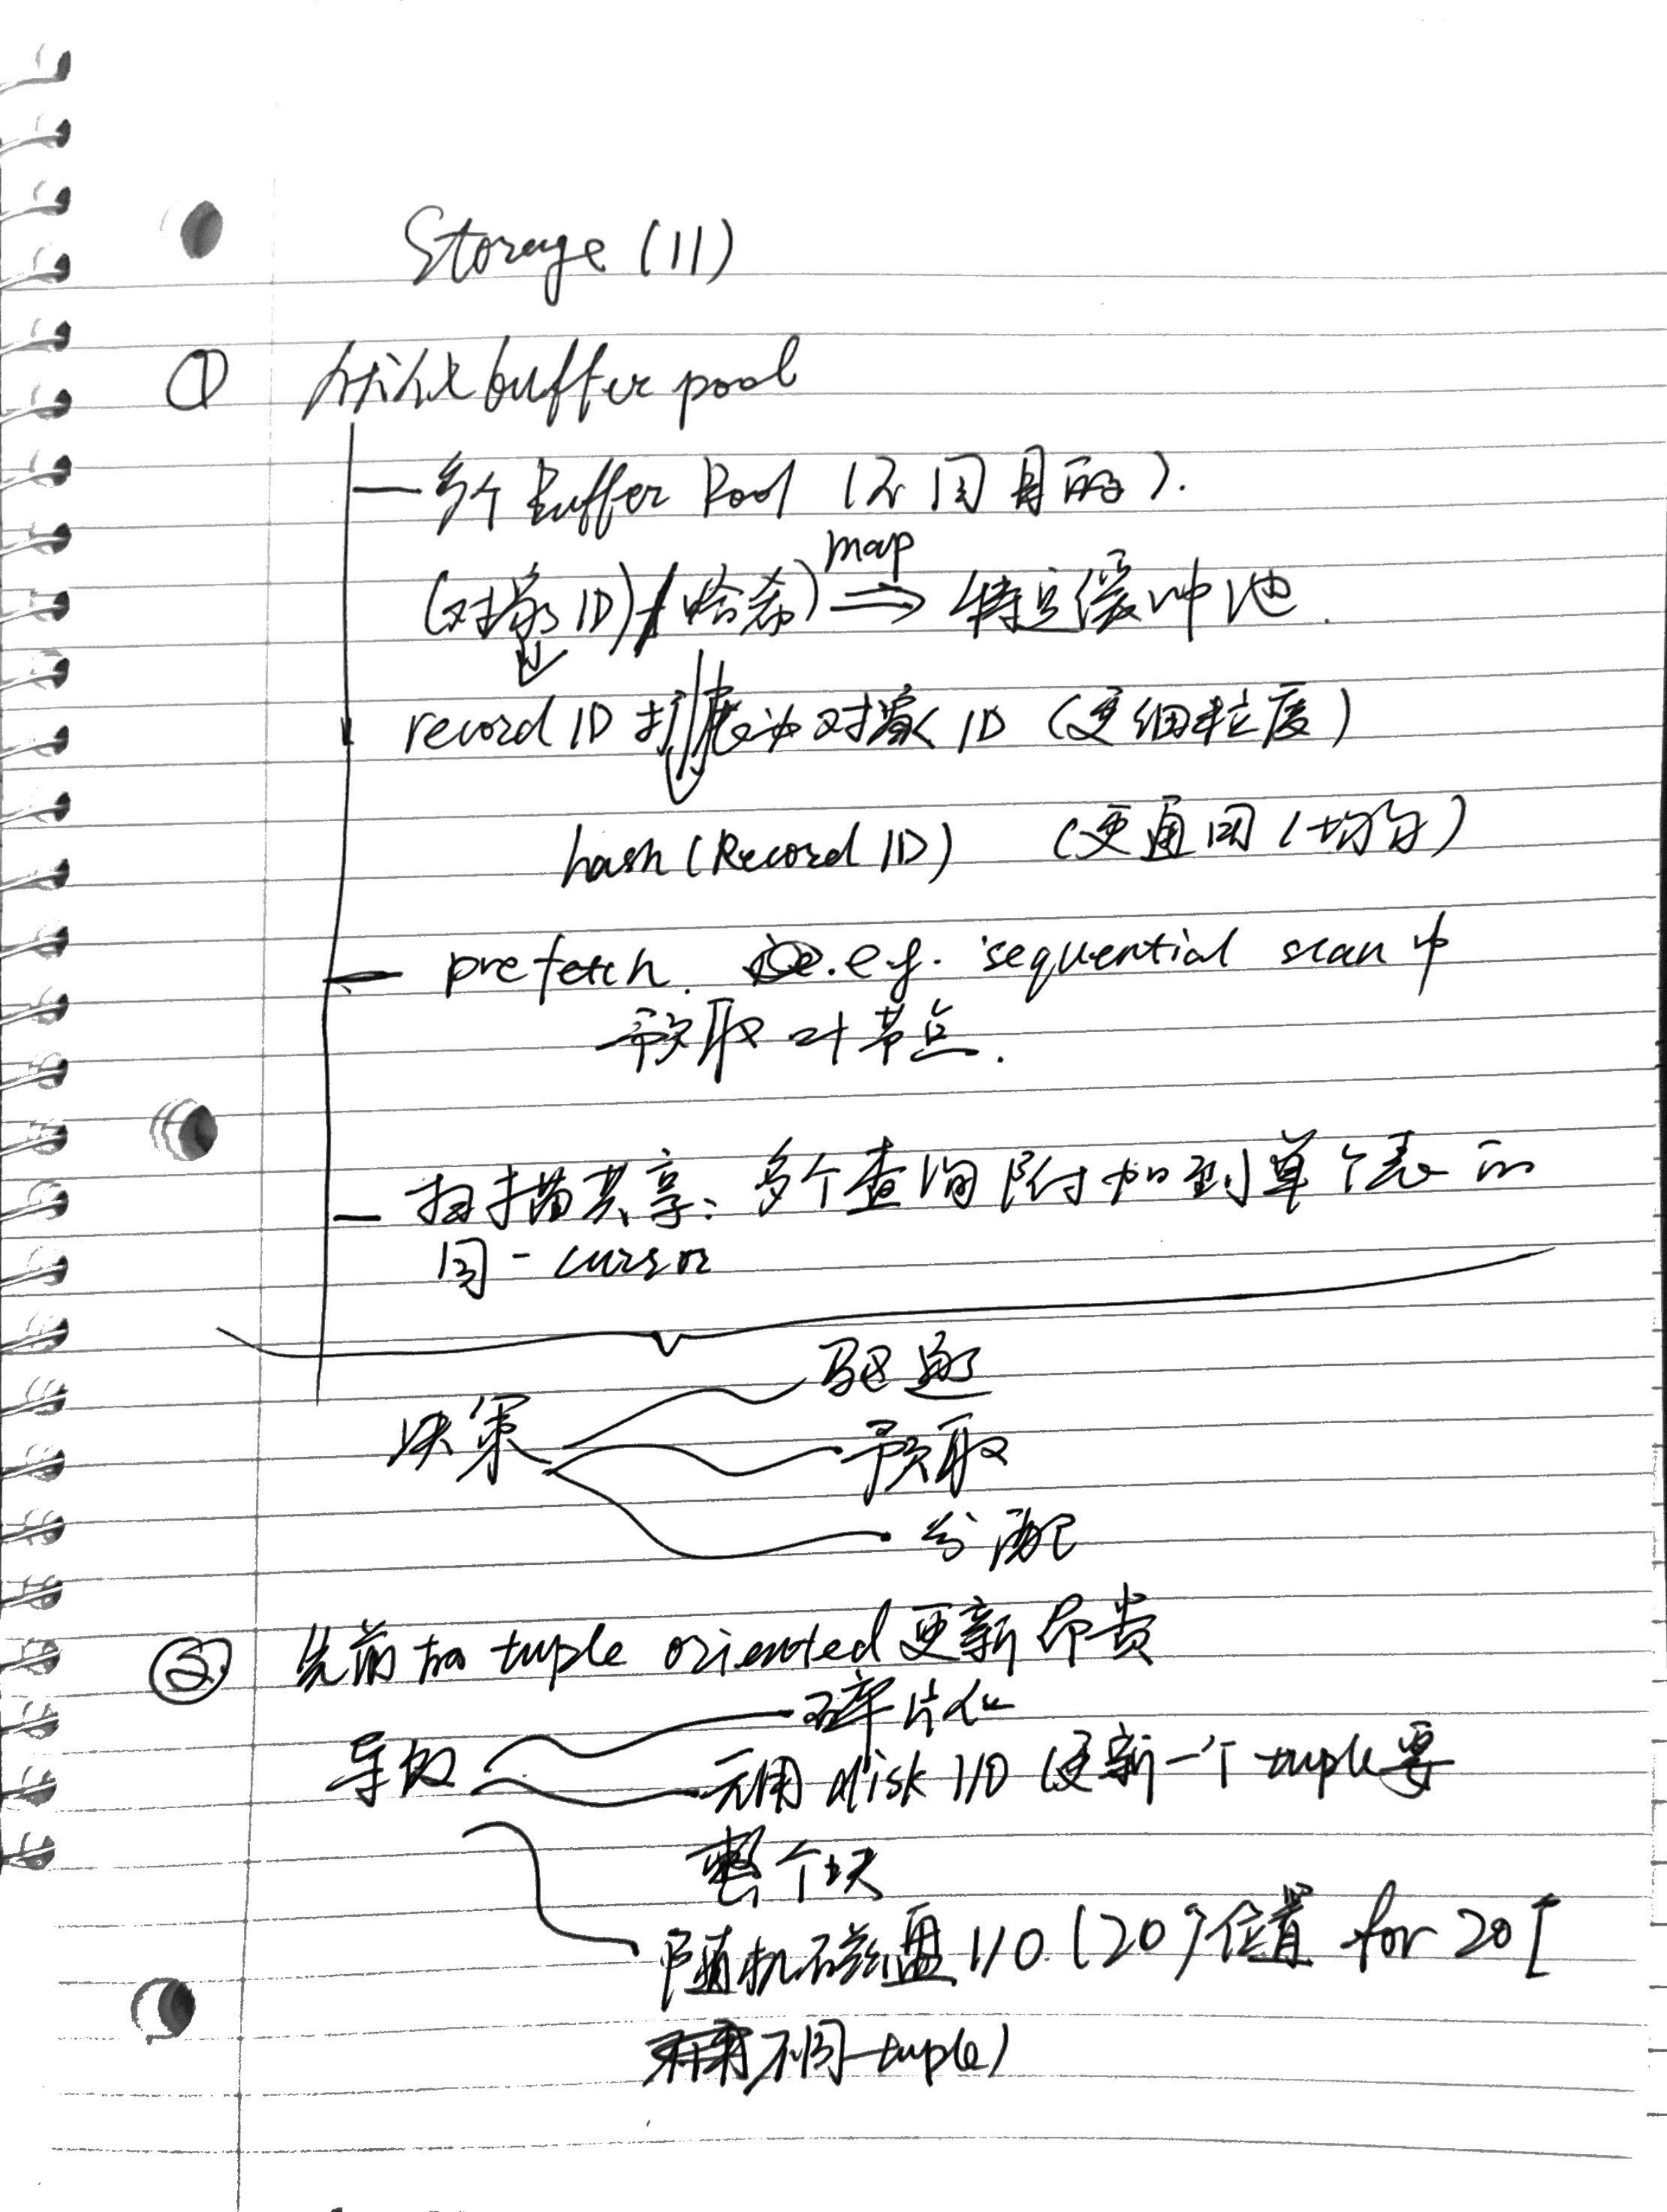 Storage (II)
① 优化 buffer pool
— 多个 Buffer Pool (不同目的).
map
(对象 ID) / (哈希) ⇒ 特定缓冲池.
record ID 扩展为对象 ID (更细粒度)
hash (Record ID) (更通用/均匀)
— prefetch. e.g. sequential scan 中
预取叶节点.
— 扫描共享: 多个查询附加到单个表的
同一 cursor
驱逐
决策
预取
分配
② 先前的 tuple oriented 更新昂贵
碎片化
导致
无用 disk I/O (更新一个 tuple 要
整个块
随机磁盘 I/O. (20个位置 for 20个
不同 tuple)